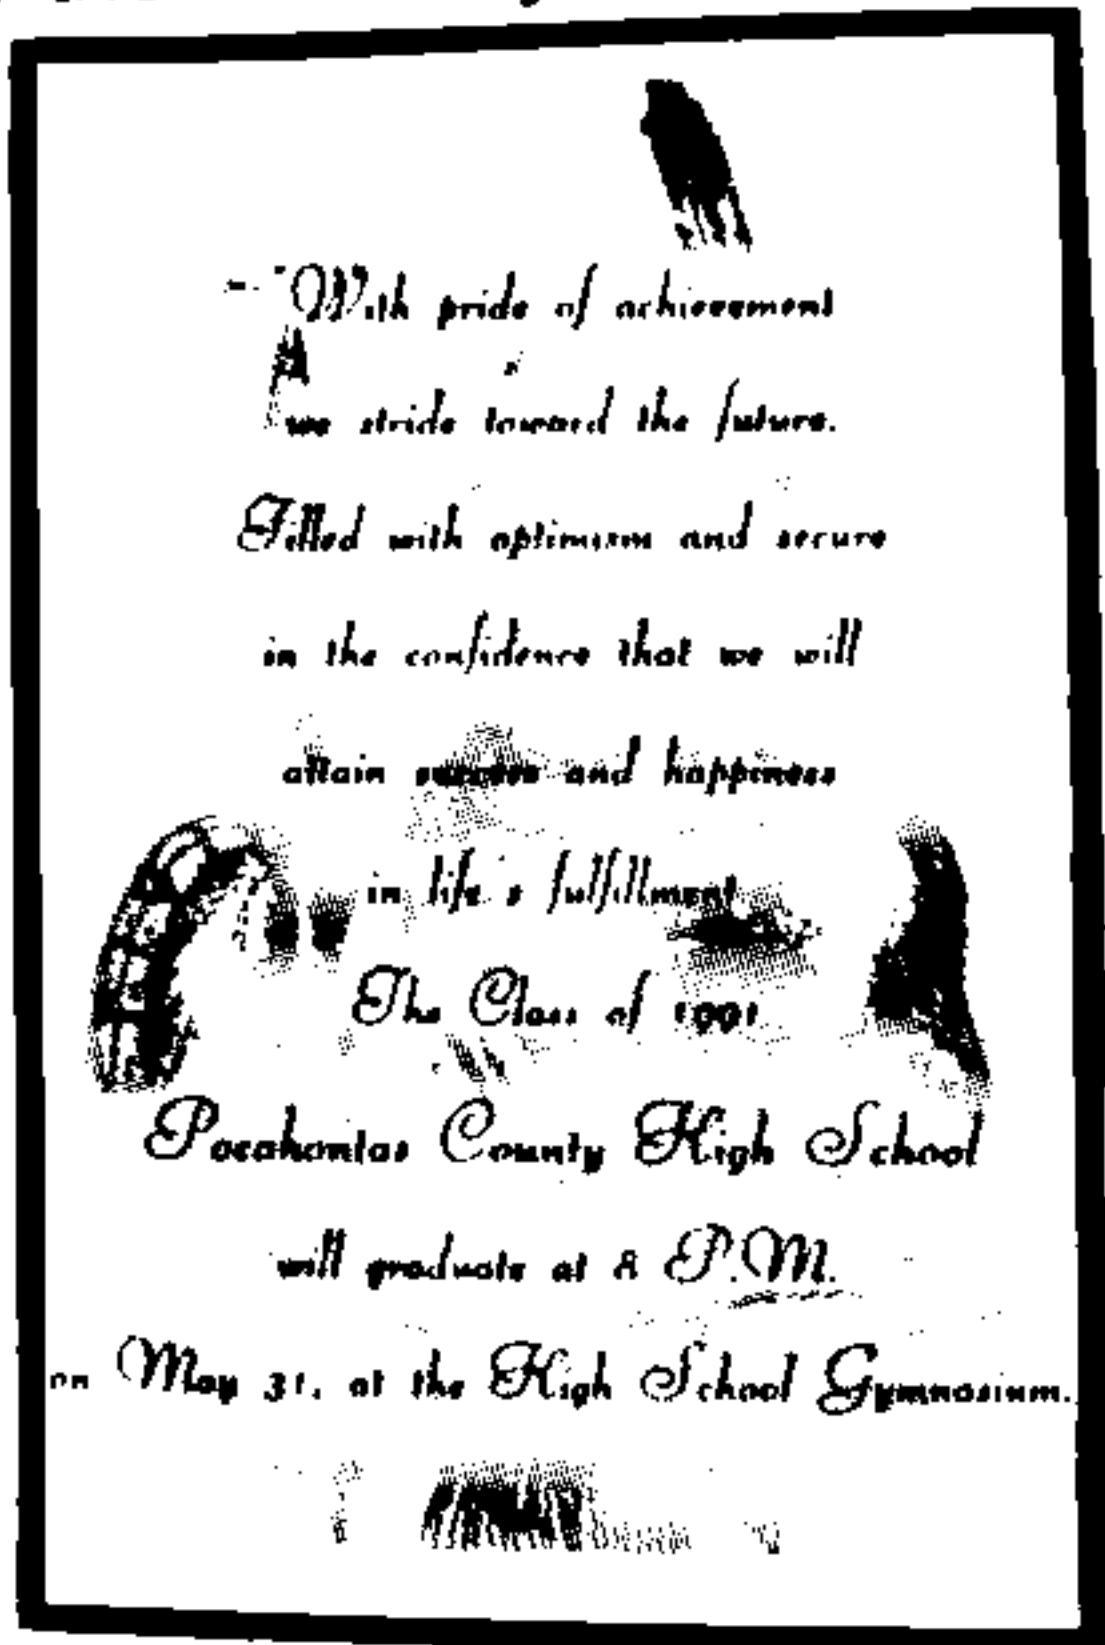 With pride of achievement
we stride toward the future.
Filled with optimism and secure
in the confidence that we will
attain success and happiness
in life's fulfillment
The Class of 1991
Pocahontas County High School
will graduate at 8 P.M.
on May 31, at the High School Gymnasium.